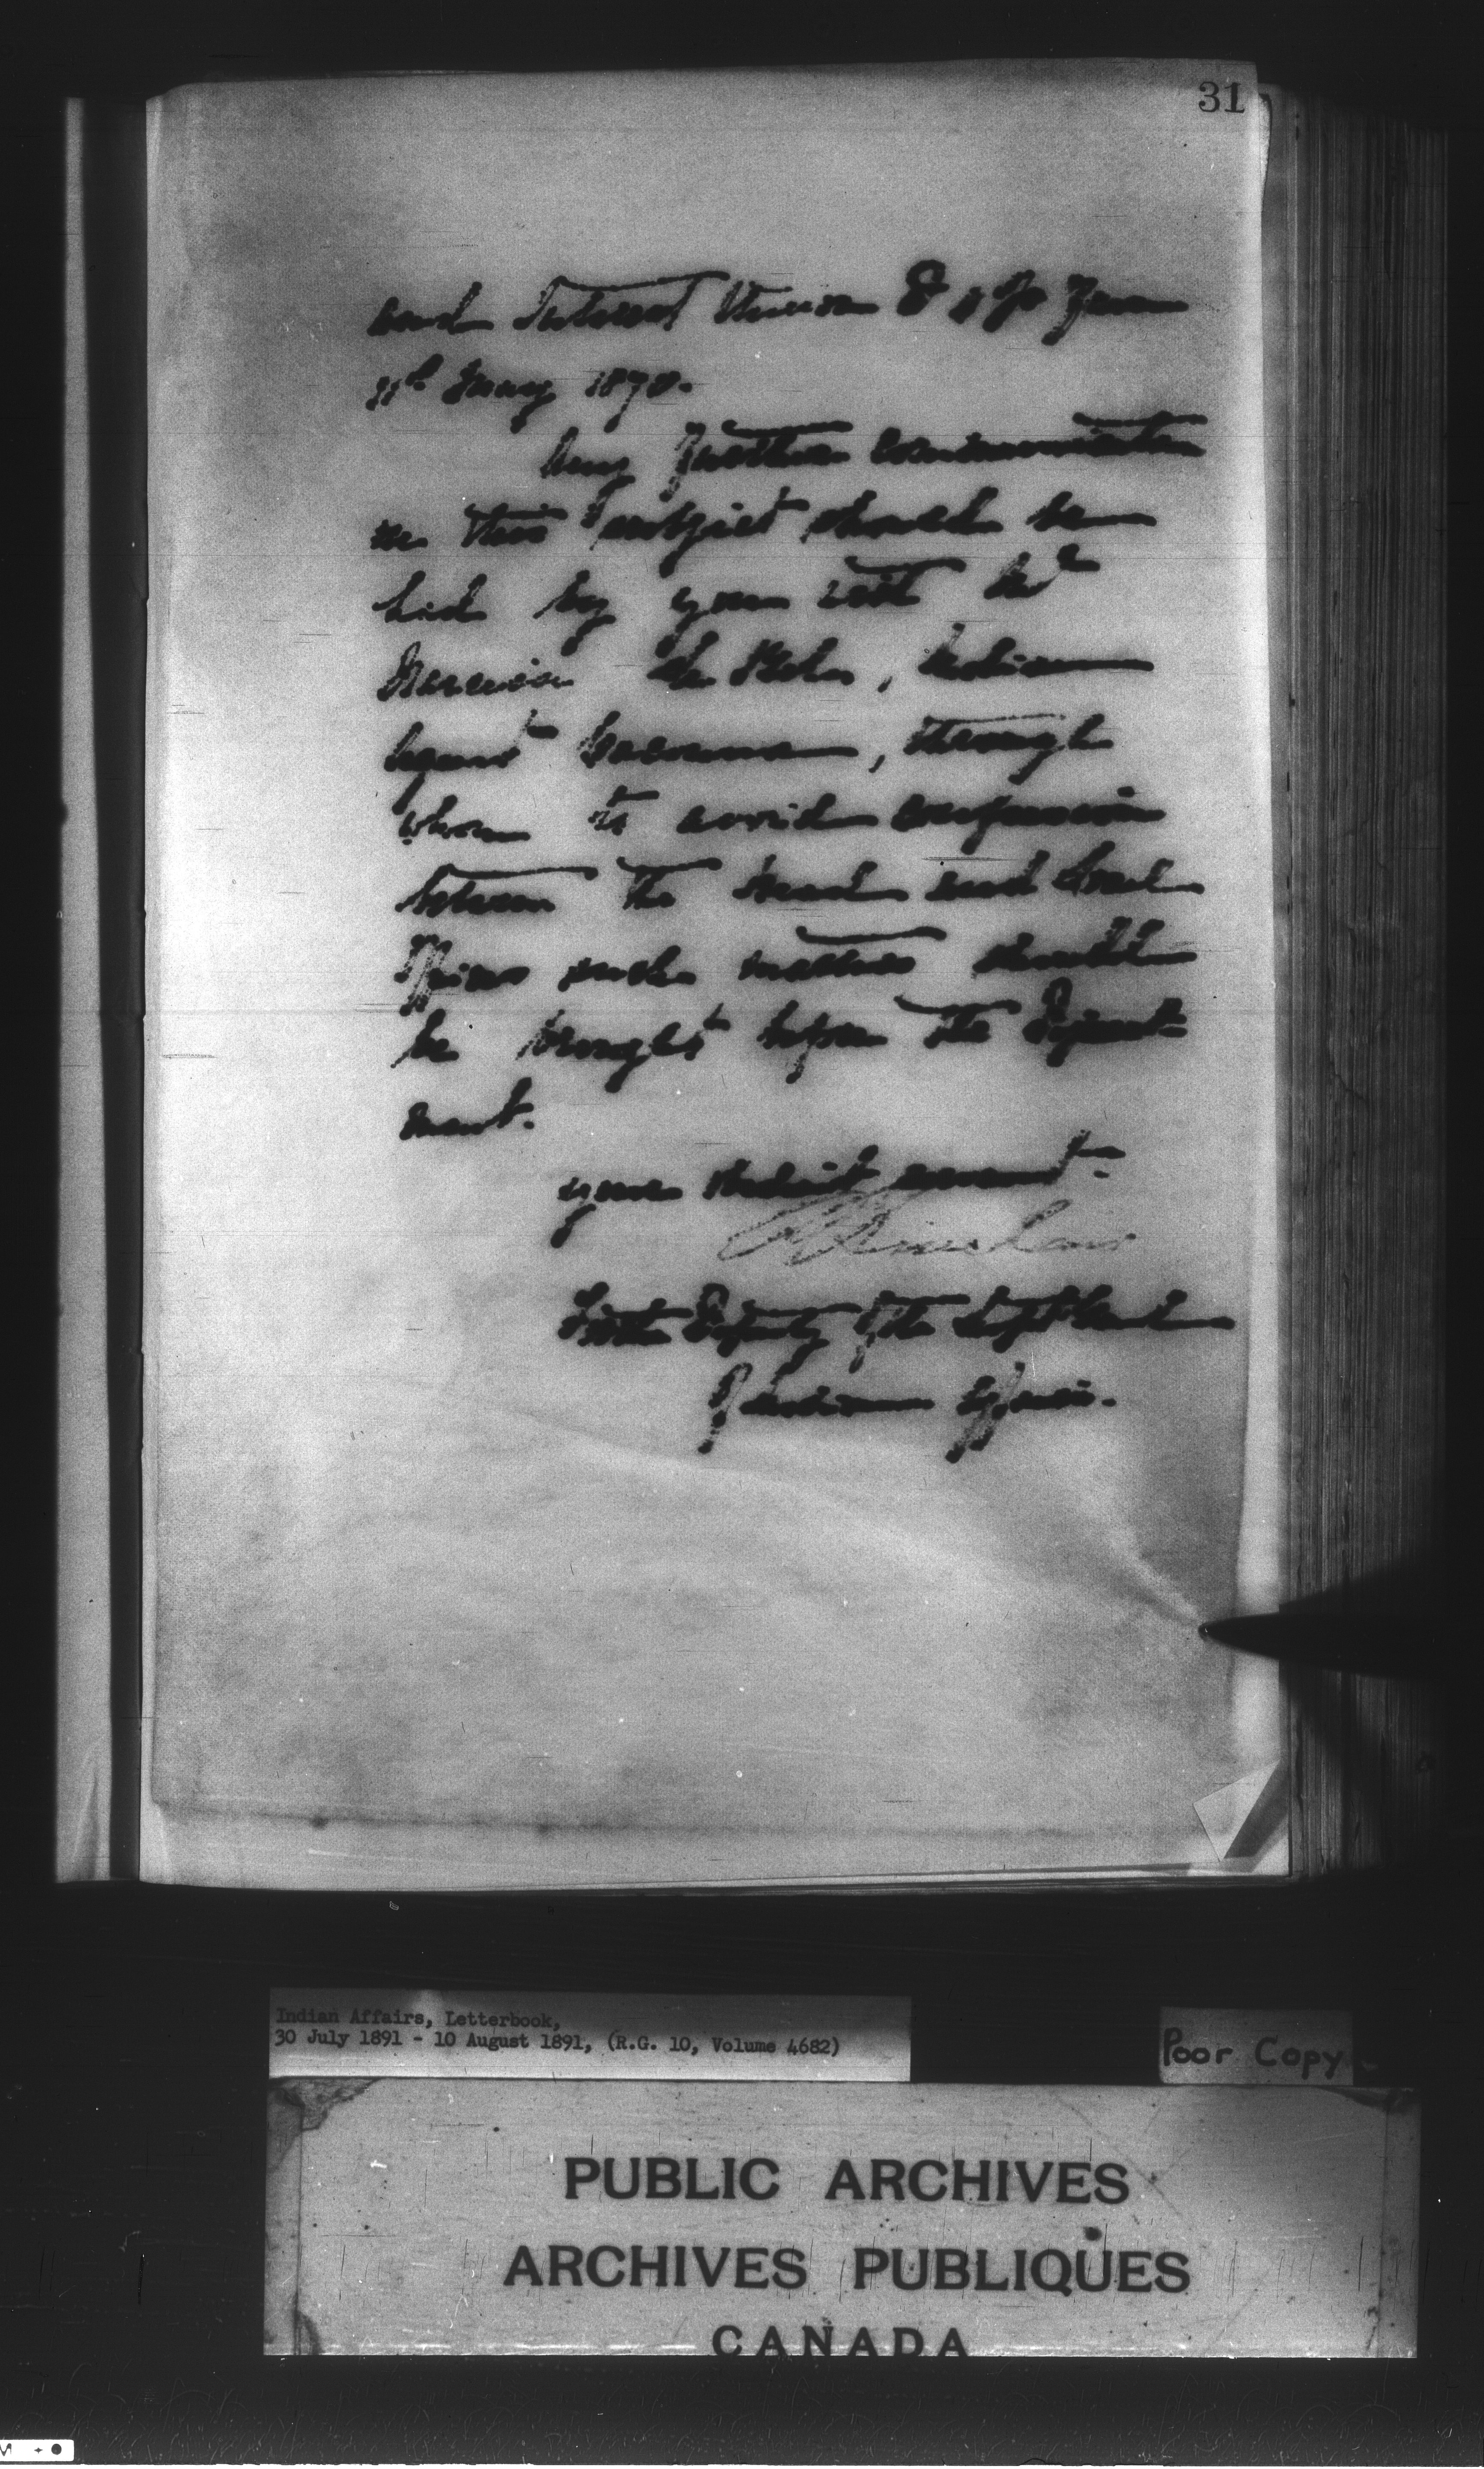 31
and Interest thereon @ % from
11th May 1870.
Any further communication
on this subject should be
had by you with
Narcisse Le Bel, Indian
Agent, through
whom to avoid confusion
between the Head and Local
Offices such matters should
be brought before the Depart-
ment.
Your obedient servant.
For the Deputy of the Supt General
of Indian Affairs.
Indian Affairs, Letterbook,
30 July 1891 - 10 August 1891, (R.G. 10, Volume 4682)
Poor Copy
PUBLIC ARCHIVES
ARCHIVES PUBLIQUES
CANADA